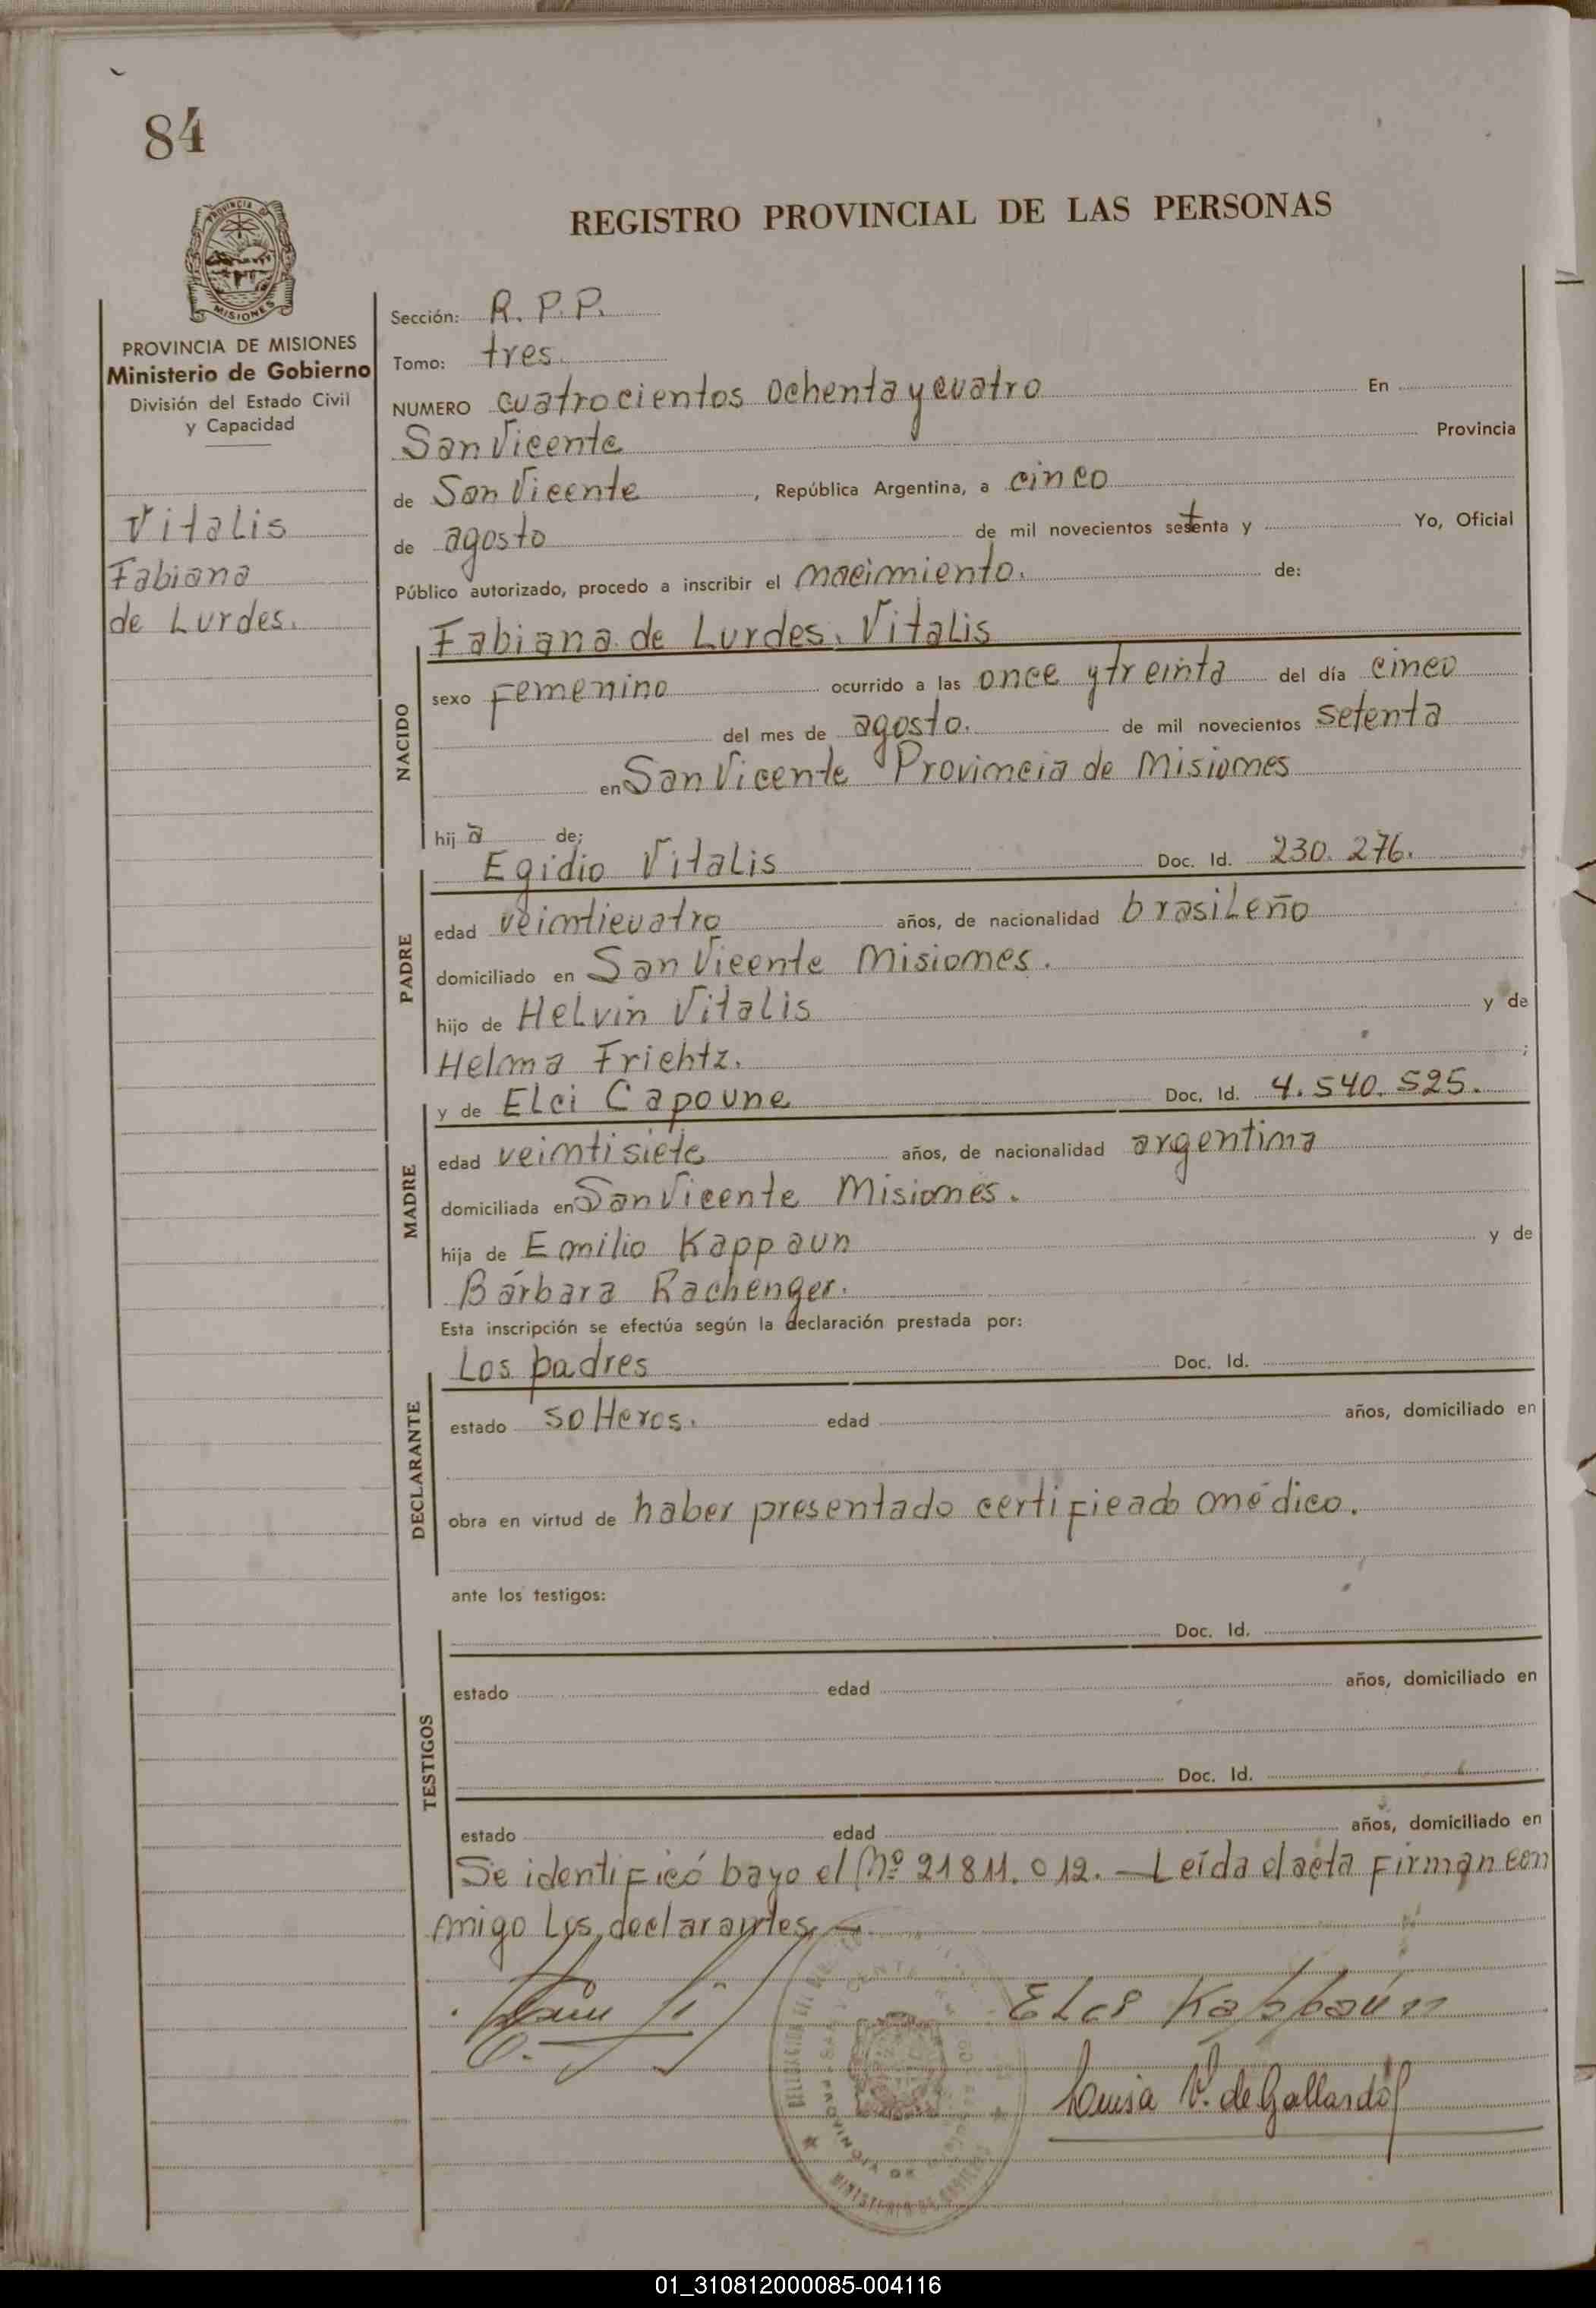 84
REGISTRO PROVINCIAL DE LAS PERSONAS
PROVINCIA DE
MISIONES
PROVINCIA DE MISIONES
Ministerio de Gobierno
División del Estado Civil
y Capacidad
Vitalis
Fabiana
de Lurdes.
Sección: R. P. P.
Tomo: tres.
NUMERO cuatrocientos ochenta y cuatro En
San Vicente Provincia
de San Vicente, República Argentina, a cinco
de agosto de mil novecientos setenta y Yo, Oficial
Público autorizado, procedo a inscribir el nacimiento. de:
NACIDO
Fabiana de Lurdes. Vitalis
sexo Femenino ocurrido a las once y treinta del día cinco
del mes de agosto. de mil novecientos setenta
en San Vicente Provincia de Misiones
hij a de:
PADRE
Egidio Vitalis Doc. Id. 230.276.
edad veinticuatro años, de nacionalidad brasileño
domiciliado en San Vicente Misiones.
hijo de Helvin Vitalis y de
Helma Frichtz. ;
MADRE
y de Elci Capoune Doc. Id. 4.540.525.
edad veintisiete años, de nacionalidad argentina
domiciliada en San Vicente Misiones.
hija de Emilio Kappaun y de
Bárbara Rachenger.
Esta inscripción se efectúa según la declaración prestada por:
DECLARANTE
Los padres Doc. Id.
estado solteros. edad años, domiciliado en
obra en virtud de haber presentado certificado médico.
ante los testigos:
TESTIGOS
Doc. Id.
estado edad años, domiciliado en
Doc. Id.
estado edad años, domiciliado en
Se identificó bayo el Nº 21811.012. — Leída el acta firman con
migo los declarantes —
Elci Kappaún
Luisa V. de Gallardo
PROVINCIA DE
01_310812000085-004116